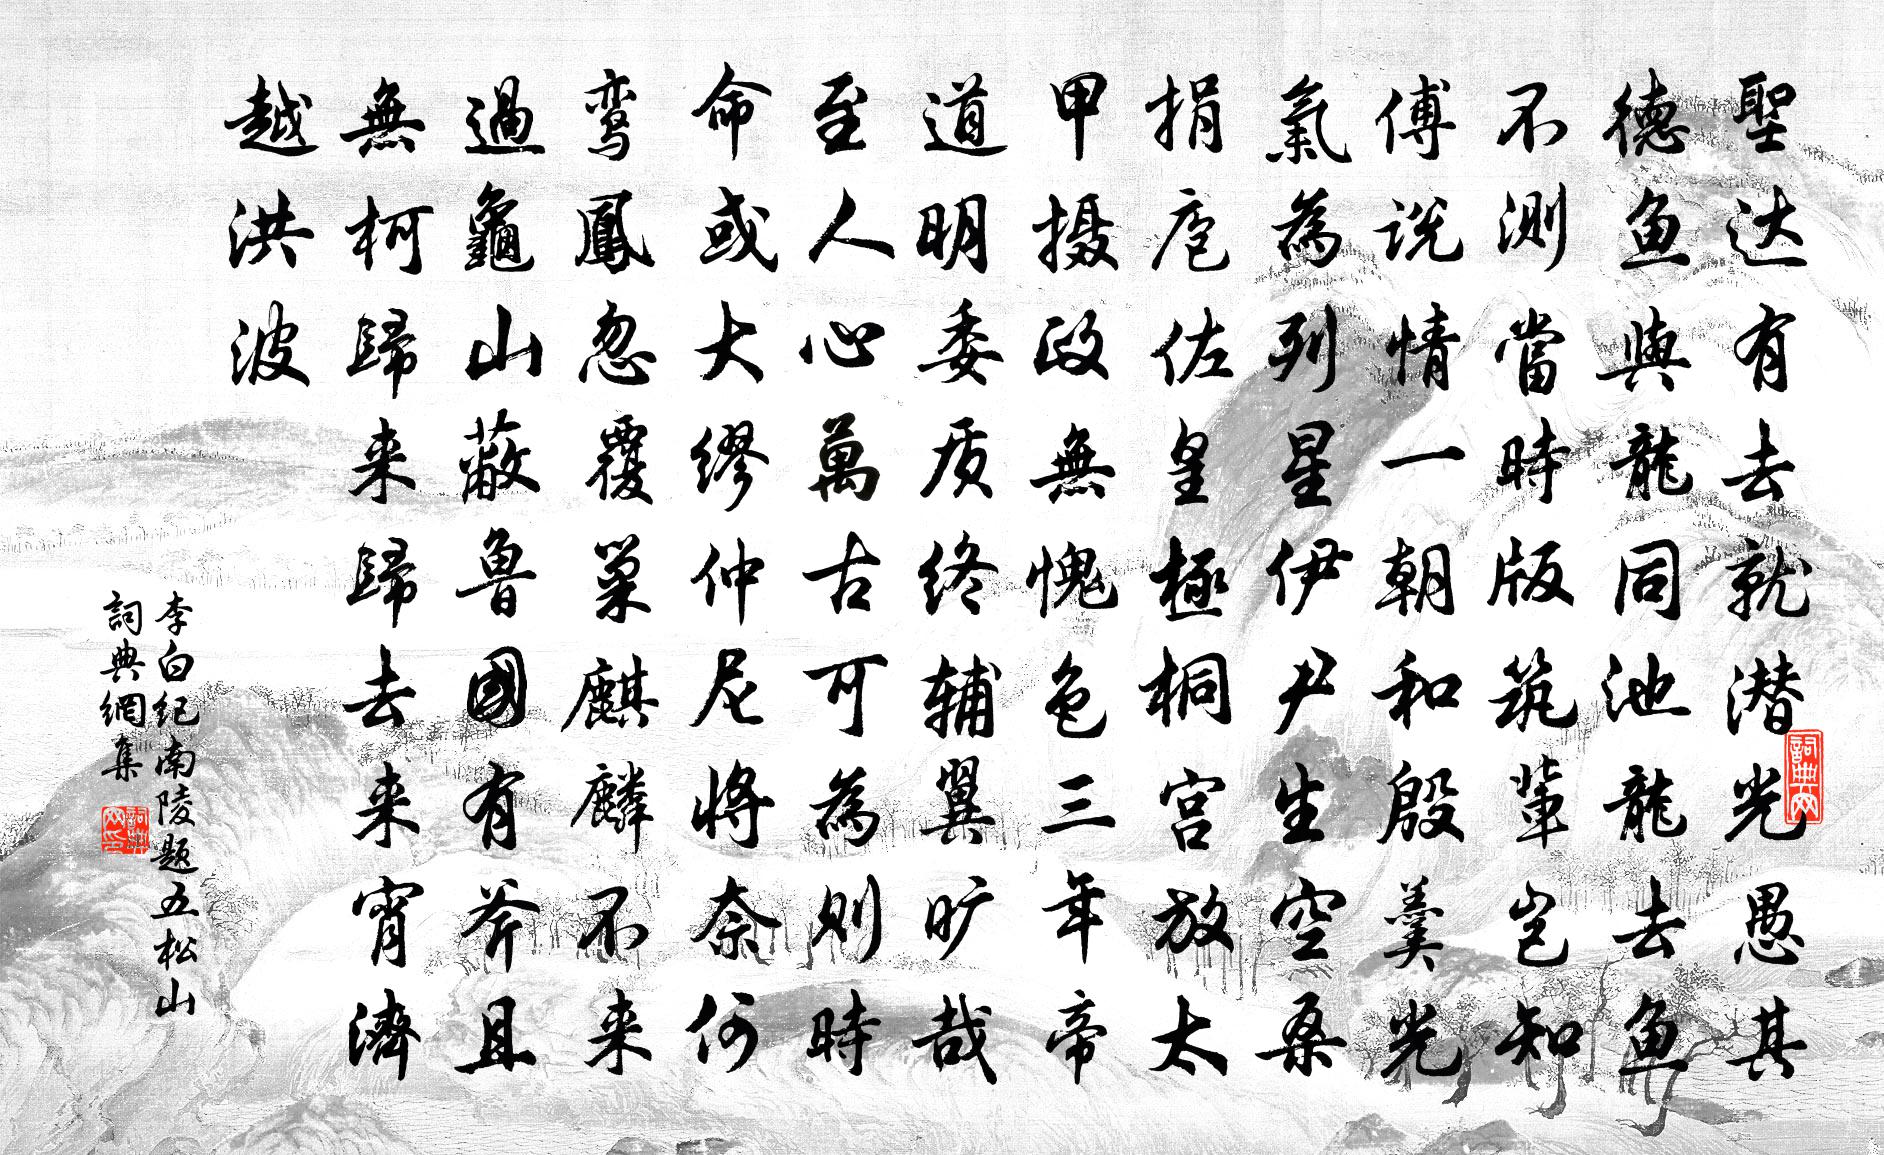 聖达有去就潜光愚其
德鱼與龍同池龍去鱼
不测當時版筑輩岂知
傅说情一朝和殷羹光
氣為列星伊尹生空桑
捐庖佐皇極桐宫放太
甲摄政無愧色三年帝
道明委质终辅翼旷哉
至人心萬古可為则時
命或大缪仲尼將奈何
鸾鳳忽覆巢麒麟不来
過龜山蔽魯國有斧且
無柯歸来歸去来宵濟
越洪波
李白纪南陵题五松山
詞典網集
詞典网
詞典网印